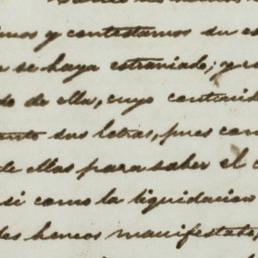 mos y contestamos su es
a se haya estraviado; y co
do de ella, cuyo contenid
anto dos letras, pues con
de ellas para saber el c
si como la liquidacion
les hemos manifestado,